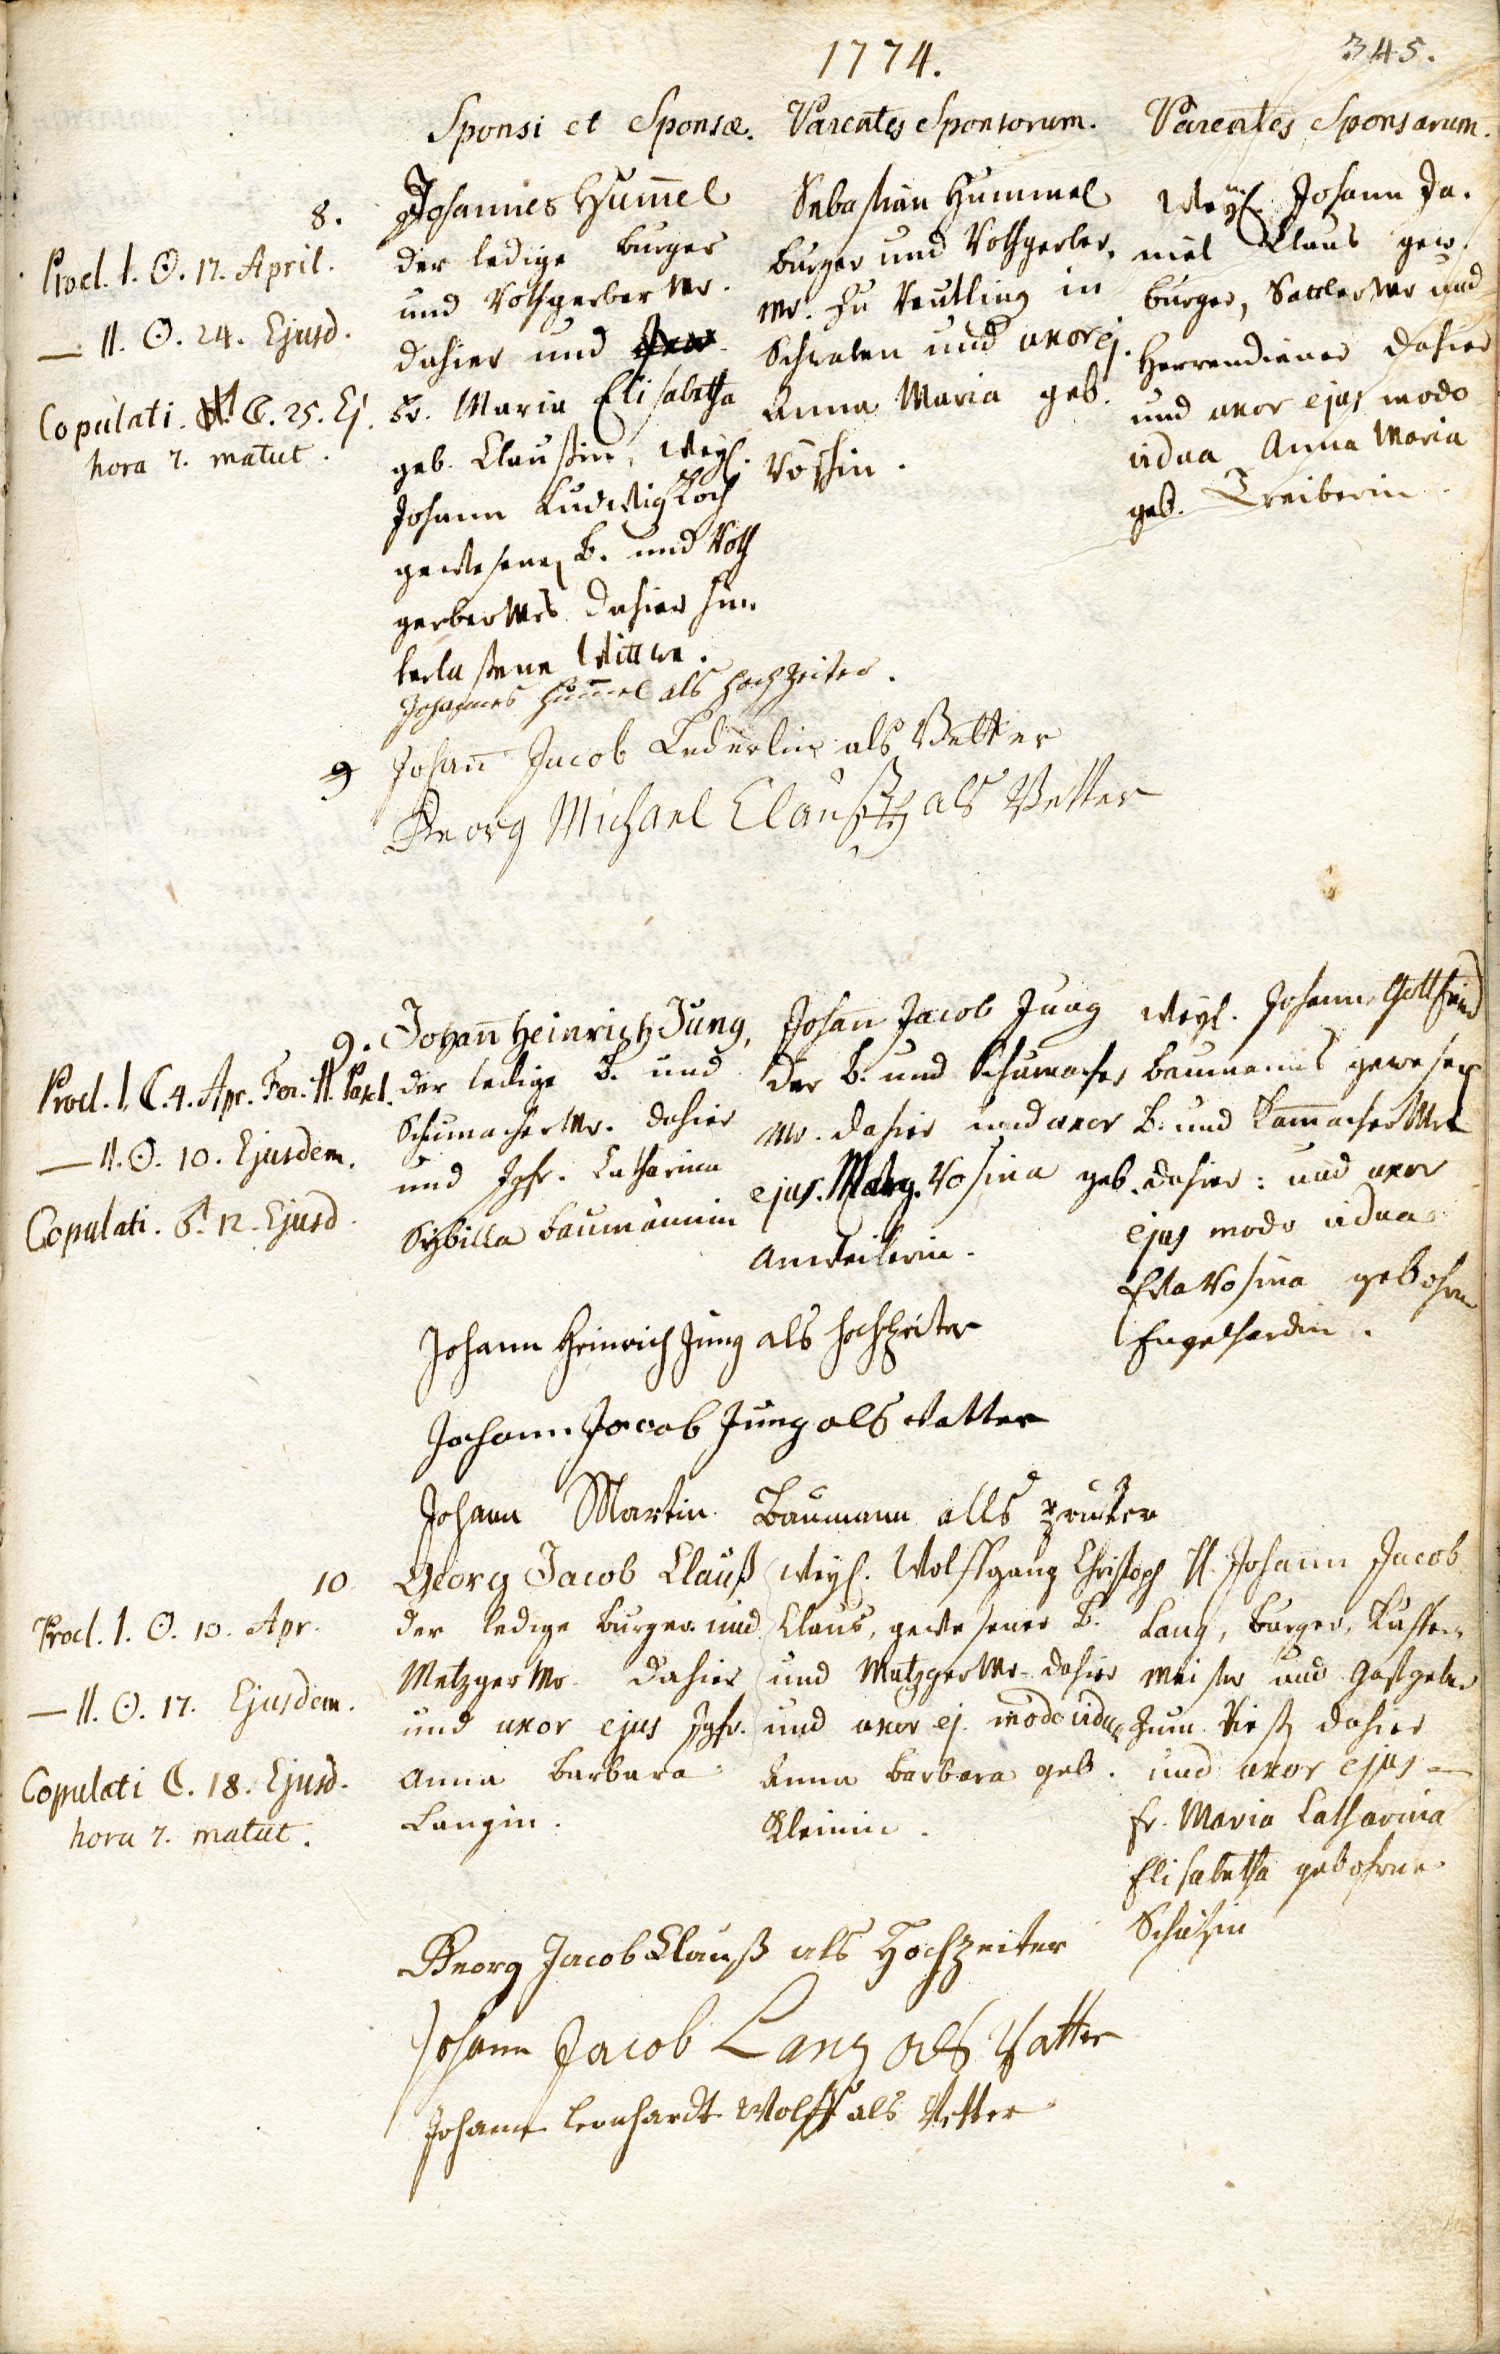 1774.
345.
Sponsi et Sponsæ.
Parentes Sponsorum.
Parentes Sponsarum.
8.
Procl. I. ☉. 17. April.
— II. ☉. 24. Ejusd.
Copulati. ☾. 25. Ej.
hora 7. matut.
Johannes Hum̄el
der ledige Burger
und Rothgerber Mr.
dahier und
Fr. Maria Elisabetha
geb. Claußin, weyl.
Johann Ludwig Koch
gewesenen B. und Roth
gerber Mrs dahier hin
terlaßene Wittwe.
Sebastian Hummel
Burger und Rothgerber
Mr. zu Reutling in
Schwaben und uxor ej.
Anna Maria geb.
Weyl. Johann Da-
niel Claus gew.
Burger, Sattler Mr und
Herrendiener dahier
und uxor ejus modo
vidua Anna Maria
geb. Treiberin
Johannes Hum̄el als Hochzeiter.
9 Johan̄ Jacob Lederlin als Vetter
Georg Michael Clauß als Vetter
9.
Procl. I. ☾. 4. Apr. Fer. II. Pasch.
— II. ☉. 10. Ejusdem.
Copulati. ♂. 12. Ejusd.
Johan̄ Heinrich Jung,
der ledige B. und
Schumacher Mr. dahier
und Jgfr. Catharina
Sybilla Baumännin
Johan̄ Jacob Jung
der B. und Schumacher
Mr. dahier und uxor
ejus. Marg. Rosina geb.
Anweilerin.
Weyl. Johann Gottfried
Baumanns gewesen
B. und Kam̄acher Mr
dahier: und uxor
ejus modo vidua
Eva Rosina gebohrne
Engelhardin.
Johann Heinrich Jung als Hochzeiter
Johann Jacob Jung als Vatter
Johann Martin Baumann alls
10
Procl. I. ☉. 10. Apr.
— II. ☉. 17. Ejusdem.
Copulati ☾. 18. Ejusd.
hora 7. matut.
Georg Jacob Clauß
der ledige Burger und
Metzger Mr. dahier
und uxor ejus Jgfr.
Anna Barbara
Langin.
Weyl. Wolffgang Christoph
Claus, gewesener B.
und Metzger Mr. dahier
und uxor ej. modo vidua
Anna Barbara geb.
Kleinin.
H. Johann Jacob
Lang, Burger, Kuffer
meister und Gastgeber
zum dahier
und uxor ejus —
Fr. Maria Catharina
Elisabetha gebohrne
Georg Jacob Clauß als Hochzeiter
Johann Jacob Lang als Vatter
Johann Leonhardt Wolff als Vetter